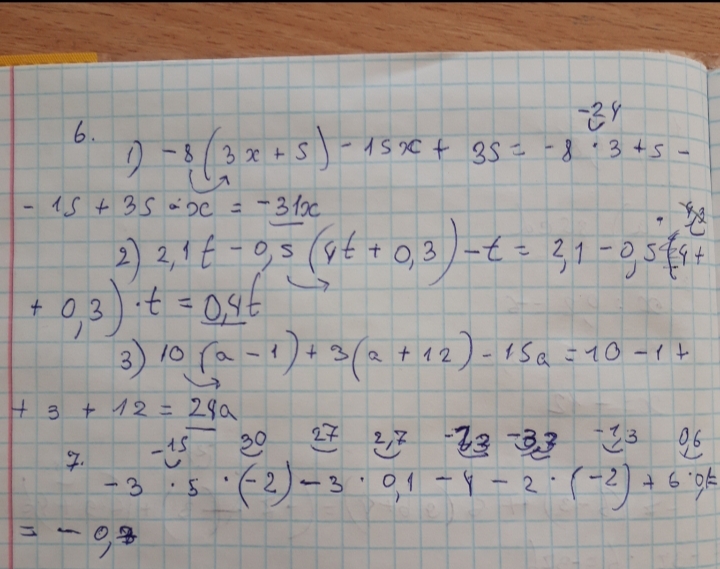 -24
6.
1) -8(3x+5)-15x+35= -8·3+5-
-15+35·x = -31x
2) 2,1t-0,5(4t+0,3)-t = 2,1-0,5·(4+
+0,3)·t = 0,4t
3) 10(a-1)+3(a+12)-15a=10-1+
+3+12=24a
-15 30 27 2,7 -1,3 -3,3 -1,3 0,6
7. -3·5·(-2)-3·0,1-4-2·(-2)+6·0,1=
= -0,7